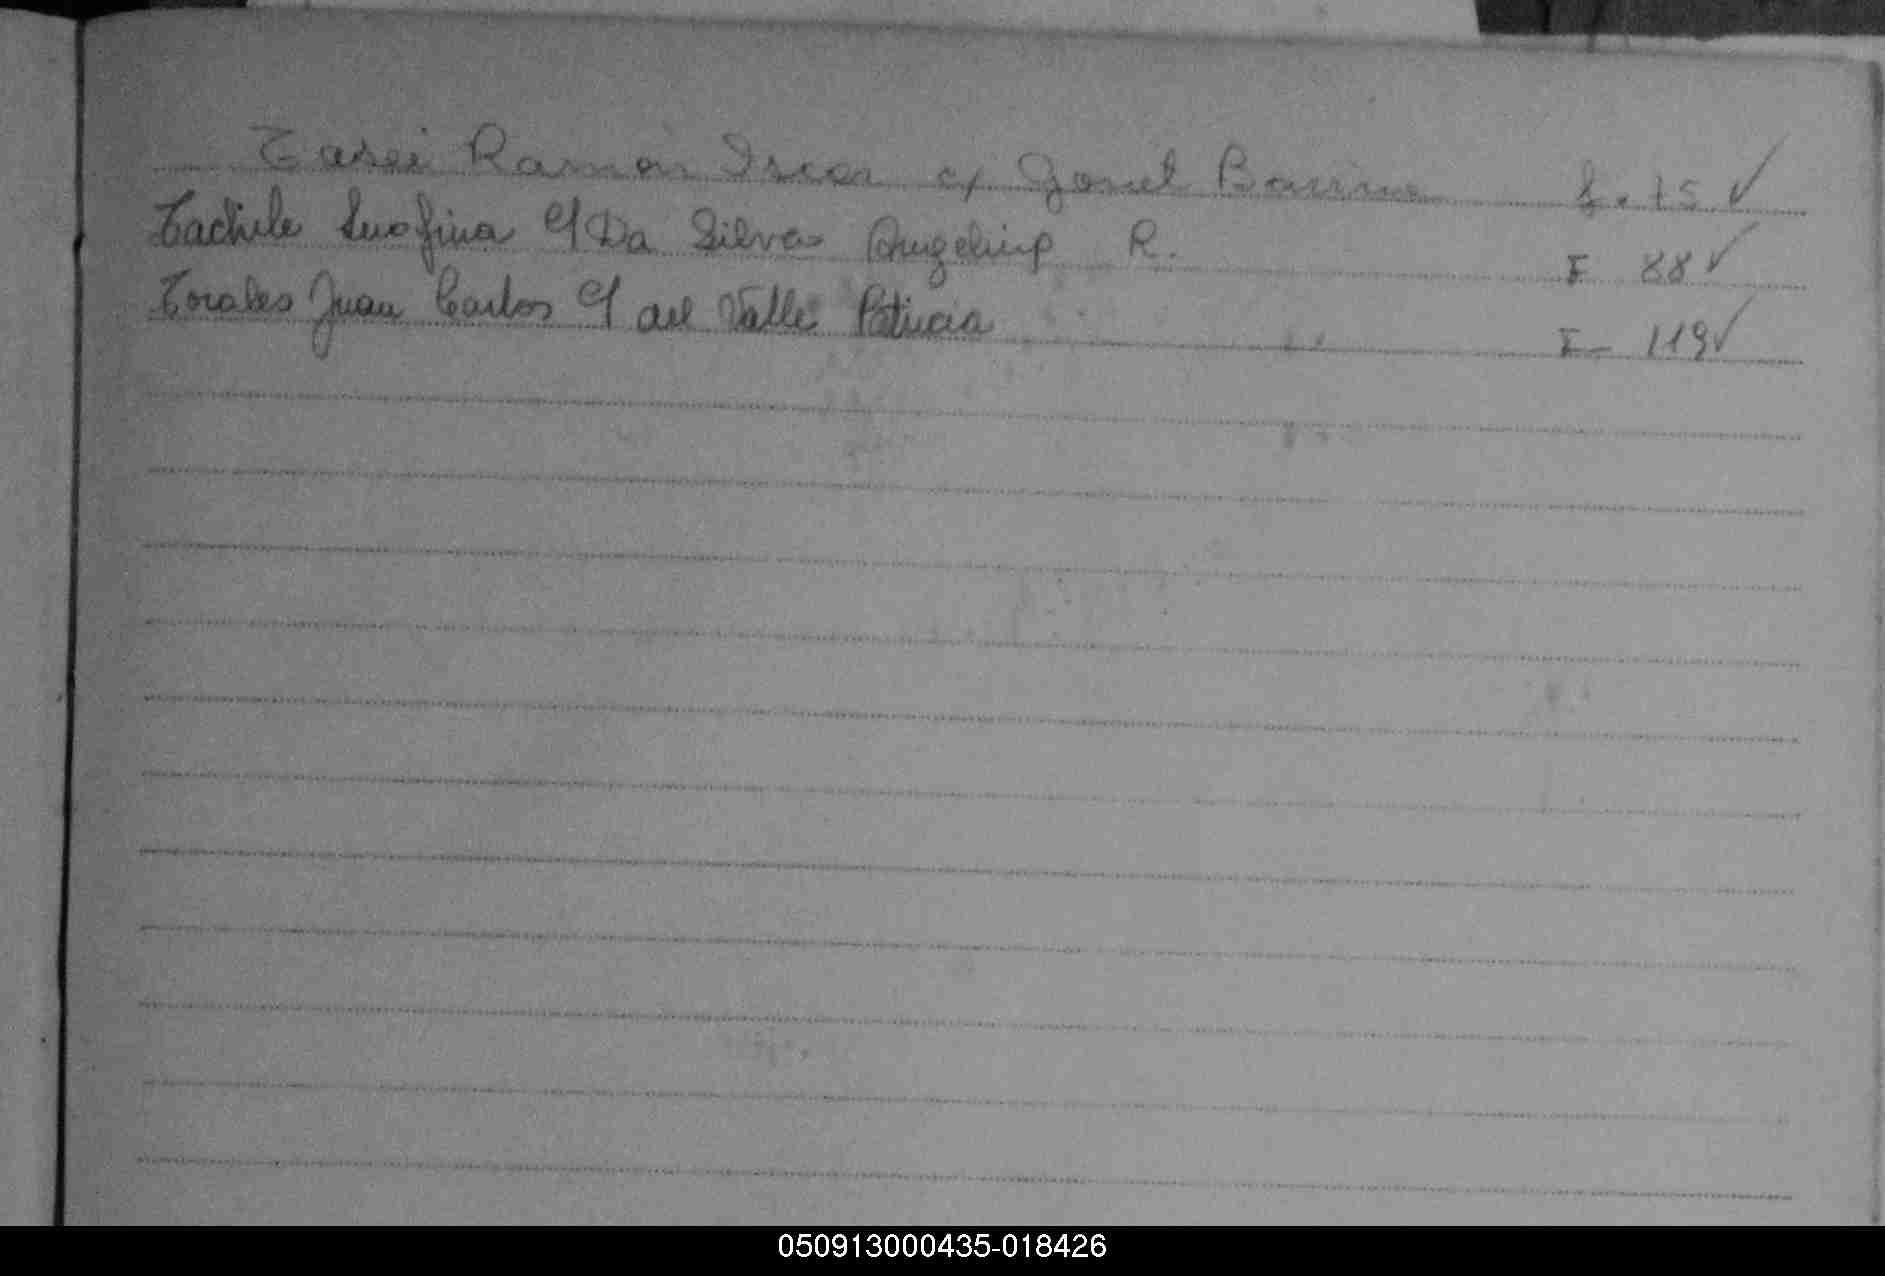 Tasei Ramón Iscar c/ Barrino f. 75 ✓
Tachile Serafina c/ Da Silva R. F 88 ✓
Torales Juan Carlos c/ del Valle Patricia F- 119 ✓
050913000435-018426